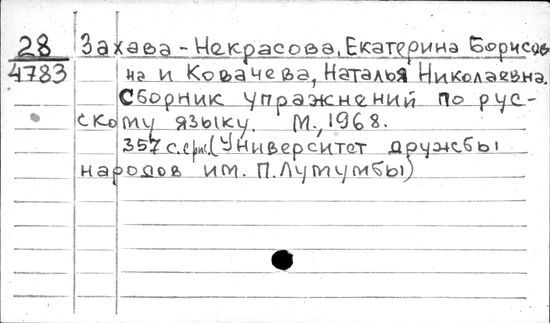 28 Захава-Некрасова, Екатерина Борисов
4783 на и Ковачева, Наталья Николаевна.
Сборник упражнений по рус-
скому языку. М., 1968.
357 с. (Университет дружбы
народов им. П. Лутумбы)